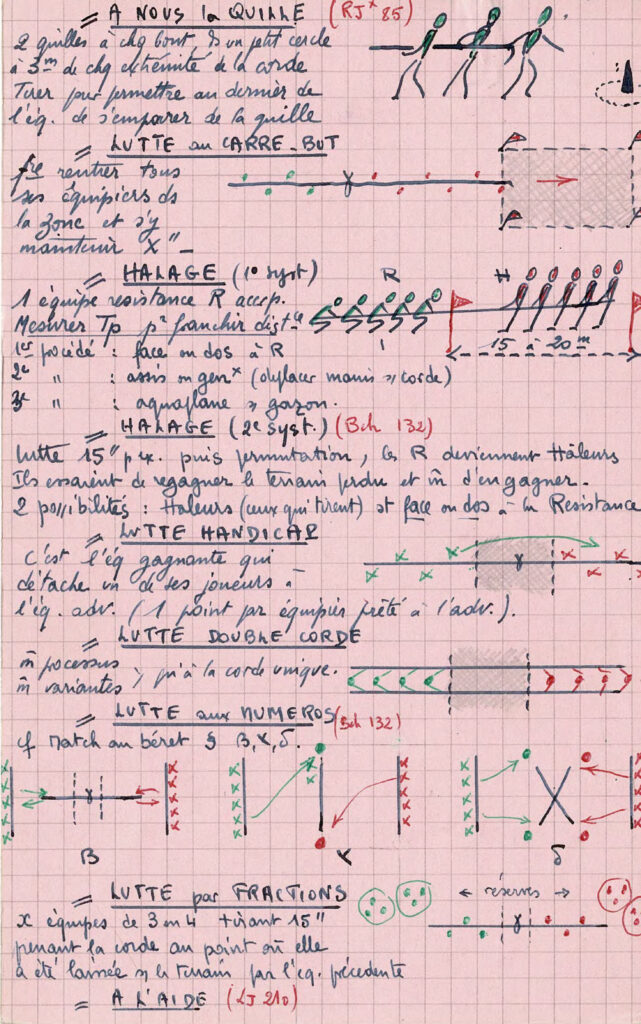 = A NOUS la QUILLE (RJx 85)
2 quilles à chq bout, ds un petit cercle
à 3m de chq extrémité de la corde
Tirer pour permettre au dernier de
l'éq. de s'emparer de la quille
= LUTTE au CARRE-BUT
fre rentrer tous
ses équipiers ds
la zone et s'y
maintenir X" -
= HALAGE (1e syst)
R H
1 équipe resistance R accep.
Mesurer Tp pr franchir dist
15 à 20m
1er procédé : face ou dos à R
2e " : assis ou genx (déplacer mains s/ corde)
3e " : aquaplane s/ gazon.
= HALAGE (2e syst.) (Bch 132)
lutte 15" p ex. puis permutation, les R deviennent Hâleurs
Ils essaient de regagner le terrain perdu et m̄ d'en gagner.
2 possibilités : Haleurs (ceux qui tirent) st face ou dos à la Resistance
= LUTTE HANDICAP
C'est l'éq gagnante qui
détache un de ses joueurs à
l'éq. adv. (1 point par équipier prêté à l'adv.).
= LUTTE DOUBLE CORDE
m̄ processus
m̄ variantes } qu'à la corde unique.
= LUTTE aux NUMEROS (Bch 132)
cf Match au béret § B, α, δ.
B α δ
= LUTTE par FRACTIONS
← réserves →
x équipes de 3 ou 4 tirant 15"
prenant la corde au point où elle
a été laissée s/ le terrain par l'éq. précédente
= A L'AIDE (LJ 210)